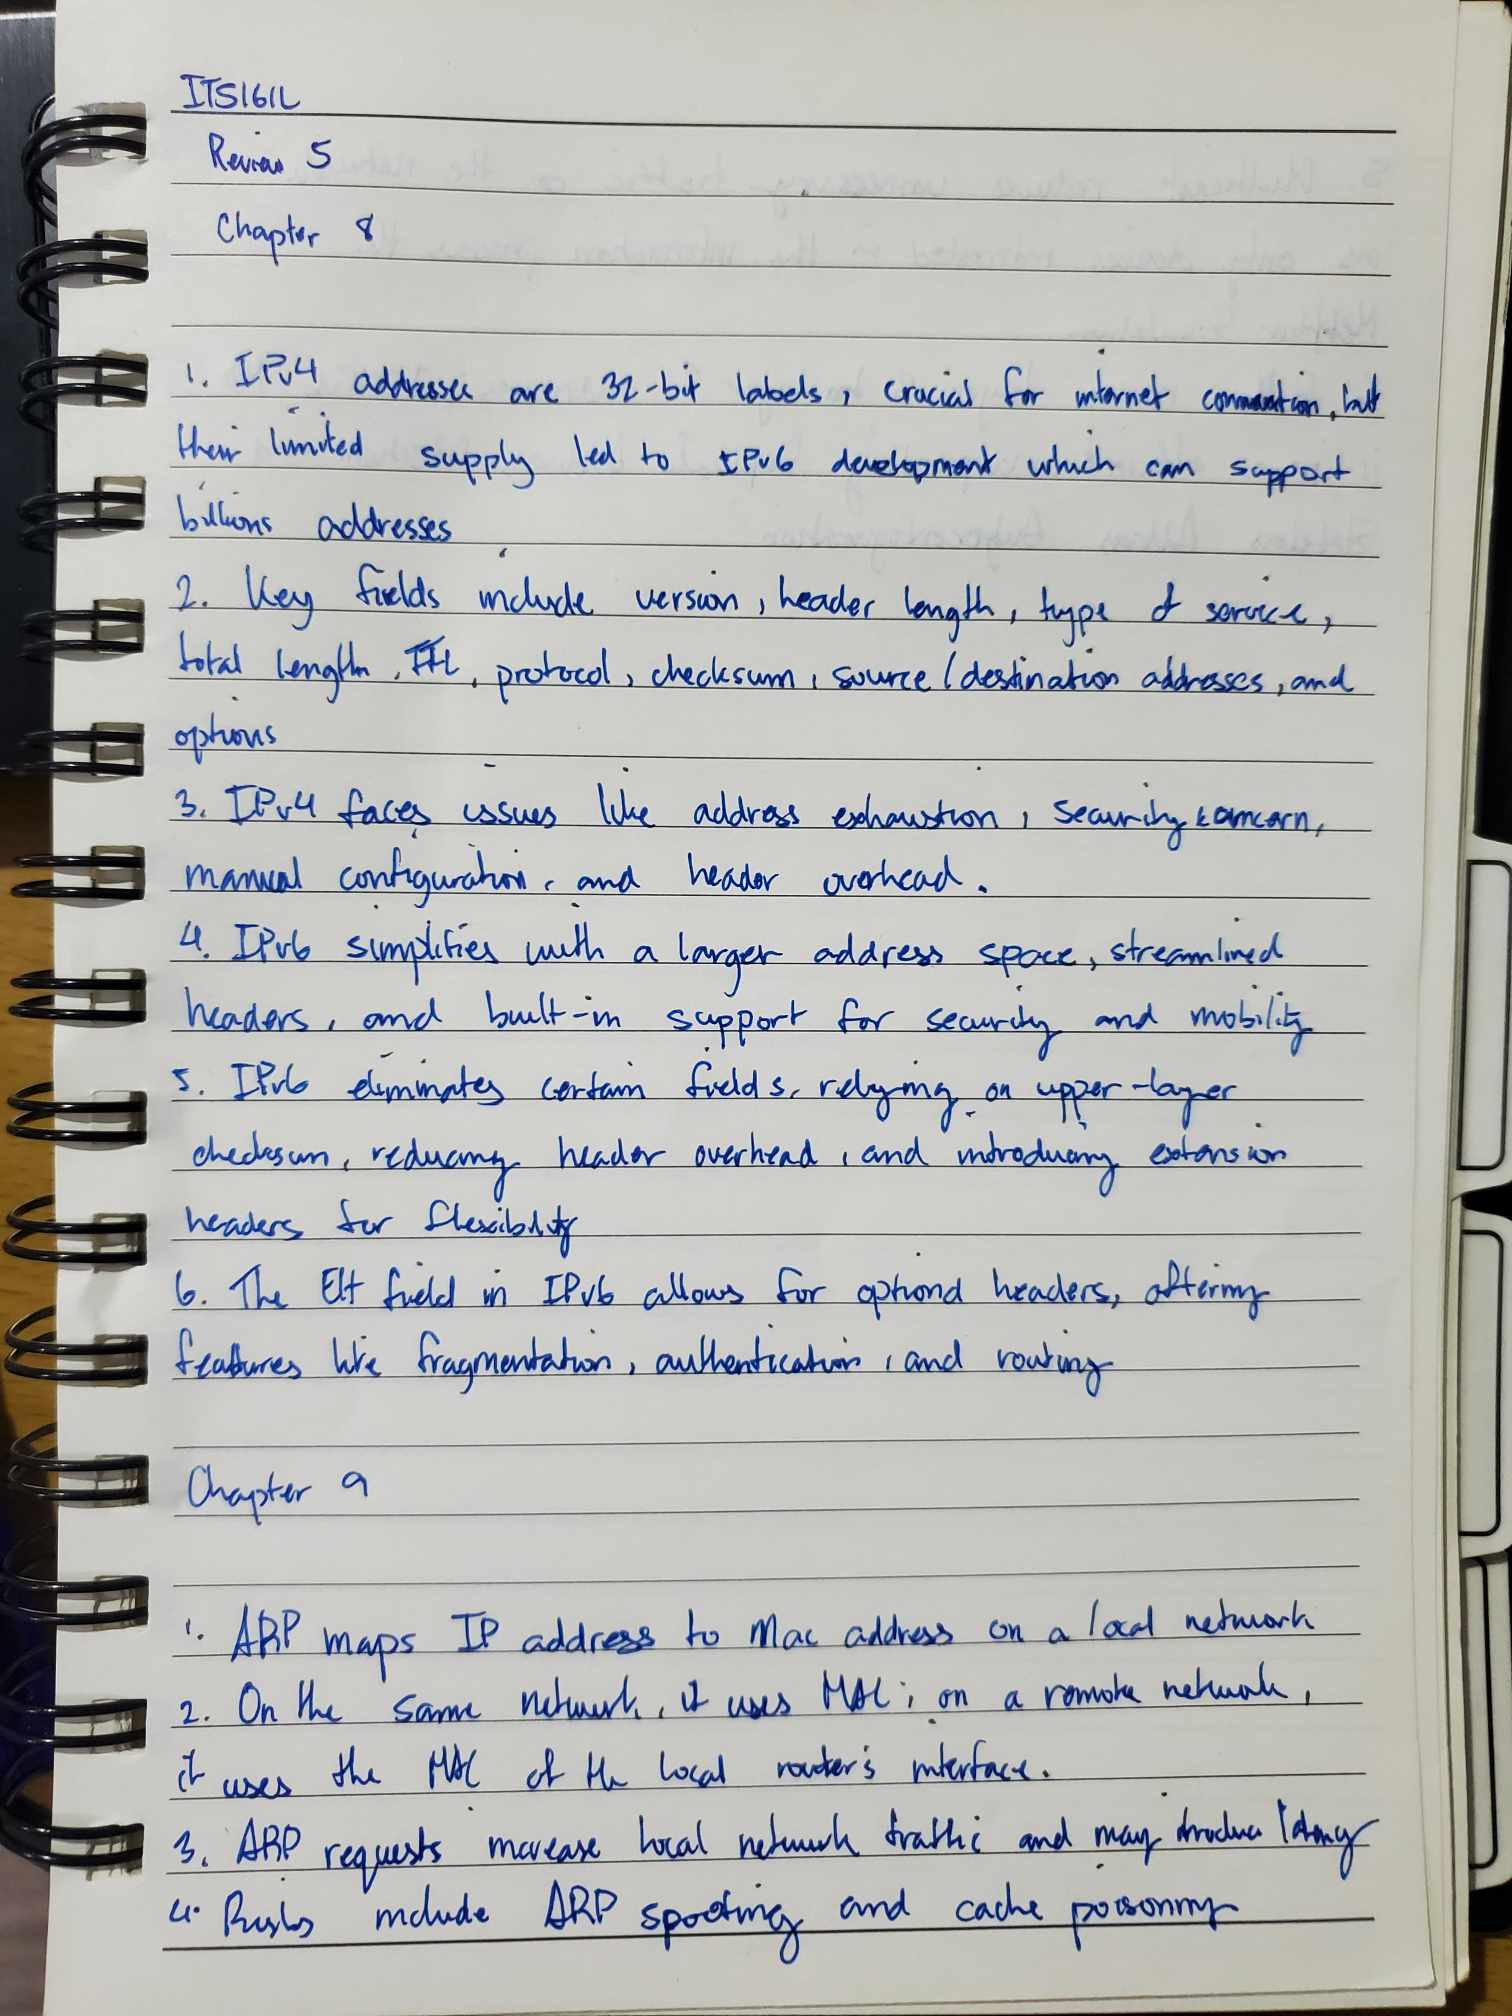 ITS161L
Review 5
Chapter 8
1. IPv4 addresses are 32-bit labels, crucial for internet connection, but
their limited supply led to IPv6 development which can support
billions addresses
2. Key fields include version, header length, type of service,
total length, TTL, protocol, checksum, source/destination addresses, and
options
3. IPv4 faces issues like address exhaustion, security concern,
manual configuration, and header overhead.
4. IPv6 simplifies with a larger address space, streamlined
headers, and built-in support for security and mobility
5. IPv6 eliminates certain fields, relying on upper-layer
checksum, reducing header overhead, and introducing extension
headers for flexibility
6. The EH field in IPv6 allows for optional headers, offering
features like fragmentation, authentication, and routing
Chapter 9
1. ARP maps IP address to Mac address on a local network
2. On the same network, it uses MAC; on a remote network,
it uses the MAC of the local router's interface.
3. ARP requests increase local network traffic and may
4. Risks include ARP spoofing and cache poisoning